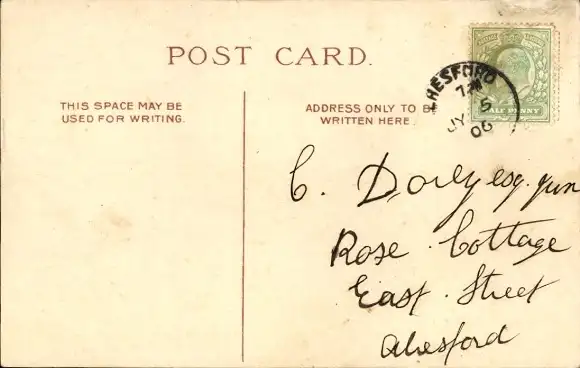 POST CARD.
THIS SPACE MAY BE
USED FOR WRITING.
ADDRESS ONLY TO B
WRITTEN HERE
LRESFORD
7
JY 5
06
HALF PENNY
C. Dorey esq. jun
Rose Cottage
East Street
Alresford